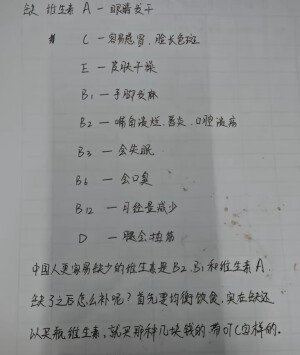 缺 维生素 A — 眼睛发干
〃 C — 容易感冒、脸长色斑
E — 皮肤干燥
B1 — 手脚发麻
B2 — 嘴角溃烂、唇炎、口腔溃疡
B3 — 会失眠
B6 — 会口臭
B12 — 月经量减少
D — 腿会抽筋
中国人更容易缺少的维生素是B2、B1和维生素A
缺了之后怎么补呢？首先要均衡饮食，实在缺还
以买瓶维生素，就买那种几块钱的带OTC字样的.